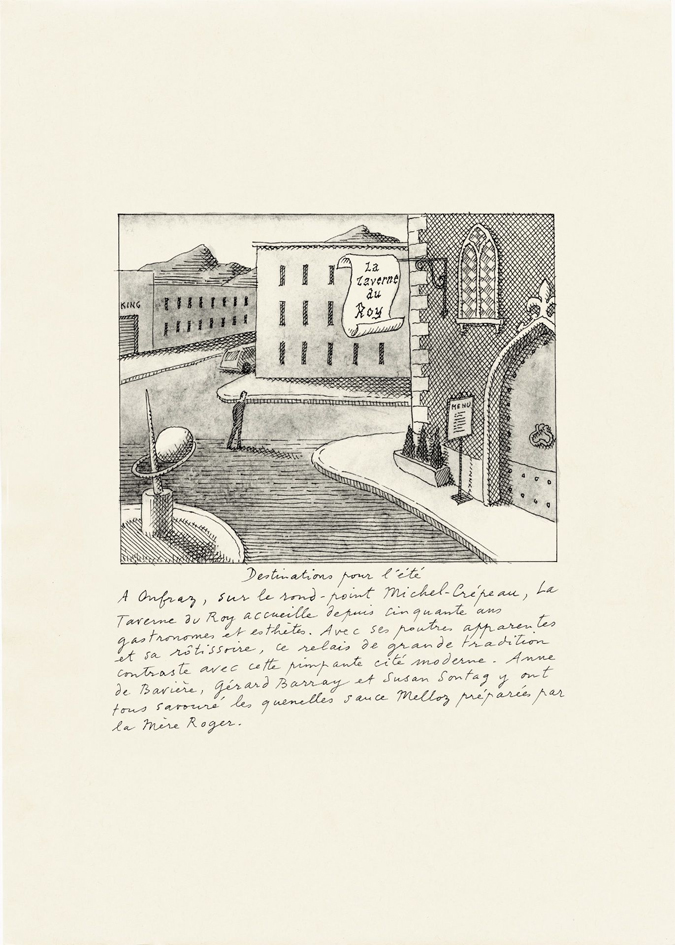 KING
La
Taverne
du
Roy
MENU
Destinations pour l'été
A Onfraz, sur le rond-point Michel-Crépeau, La
Taverne du Roy accueille depuis cinquante ans
gastronomes et esthètes. Avec ses poutres apparentes
et sa rôtissoire, ce relais de grande tradition
contraste avec cette pimpante cité moderne. Anne
de Bavière, Gérard Barray et Susan Sontag y ont
tous savouré les quenelles sauce Melloz préparées par
la Mère Roger.